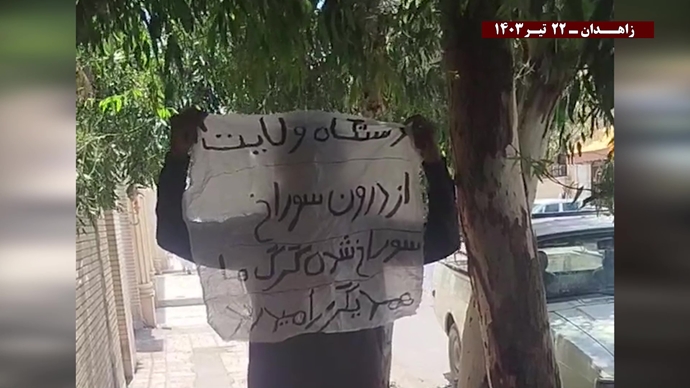 زاهدان ـ ۲۲ تیر ۱۴۰۳
دستگاه ولایت
از درون سوراخ
سوراخ شده گرگ ها
همدیگر را میدرند